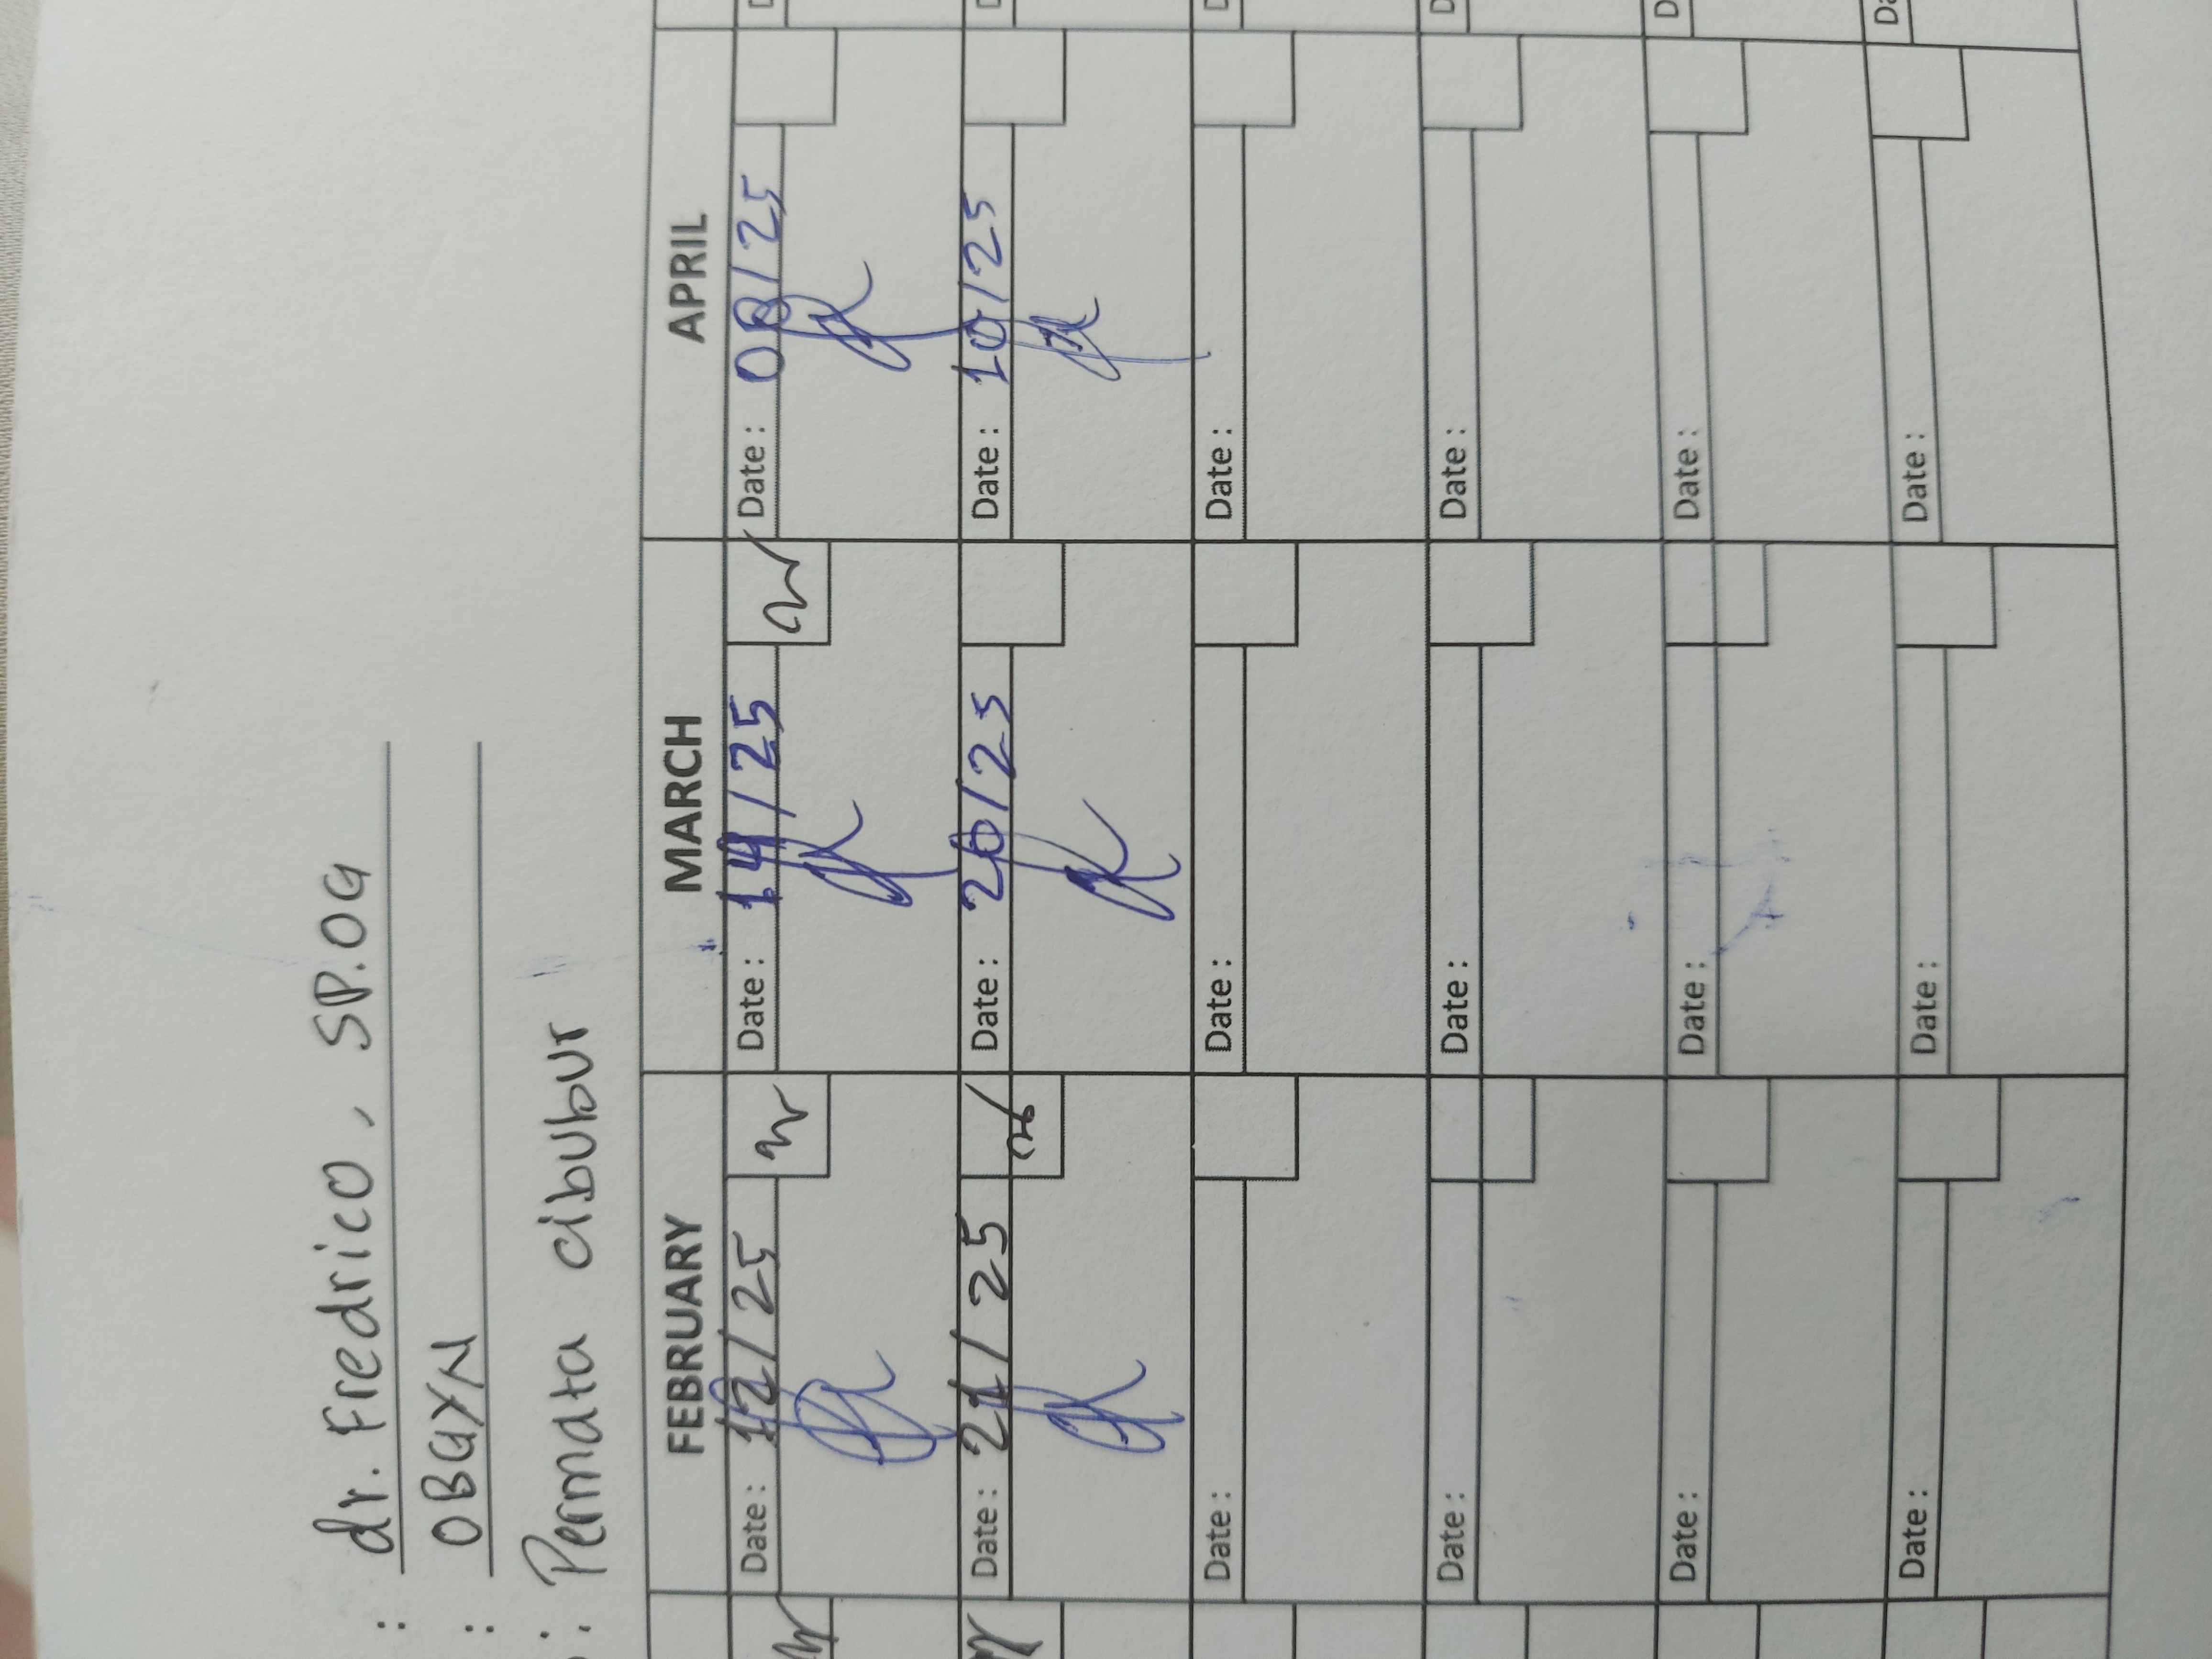 : dr. Fredrico, SP.OG
: OBGYN
: Permata cibubur
FEBRUARY MARCH APRIL
Date : 12/25 Date : 14/25 Date : 08/25
Date : 21/25 Date : 20/25 Date : 10/25
Date : Date : Date :
Date : Date : Date :
Date : Date : Date :
Date : Date : Date :